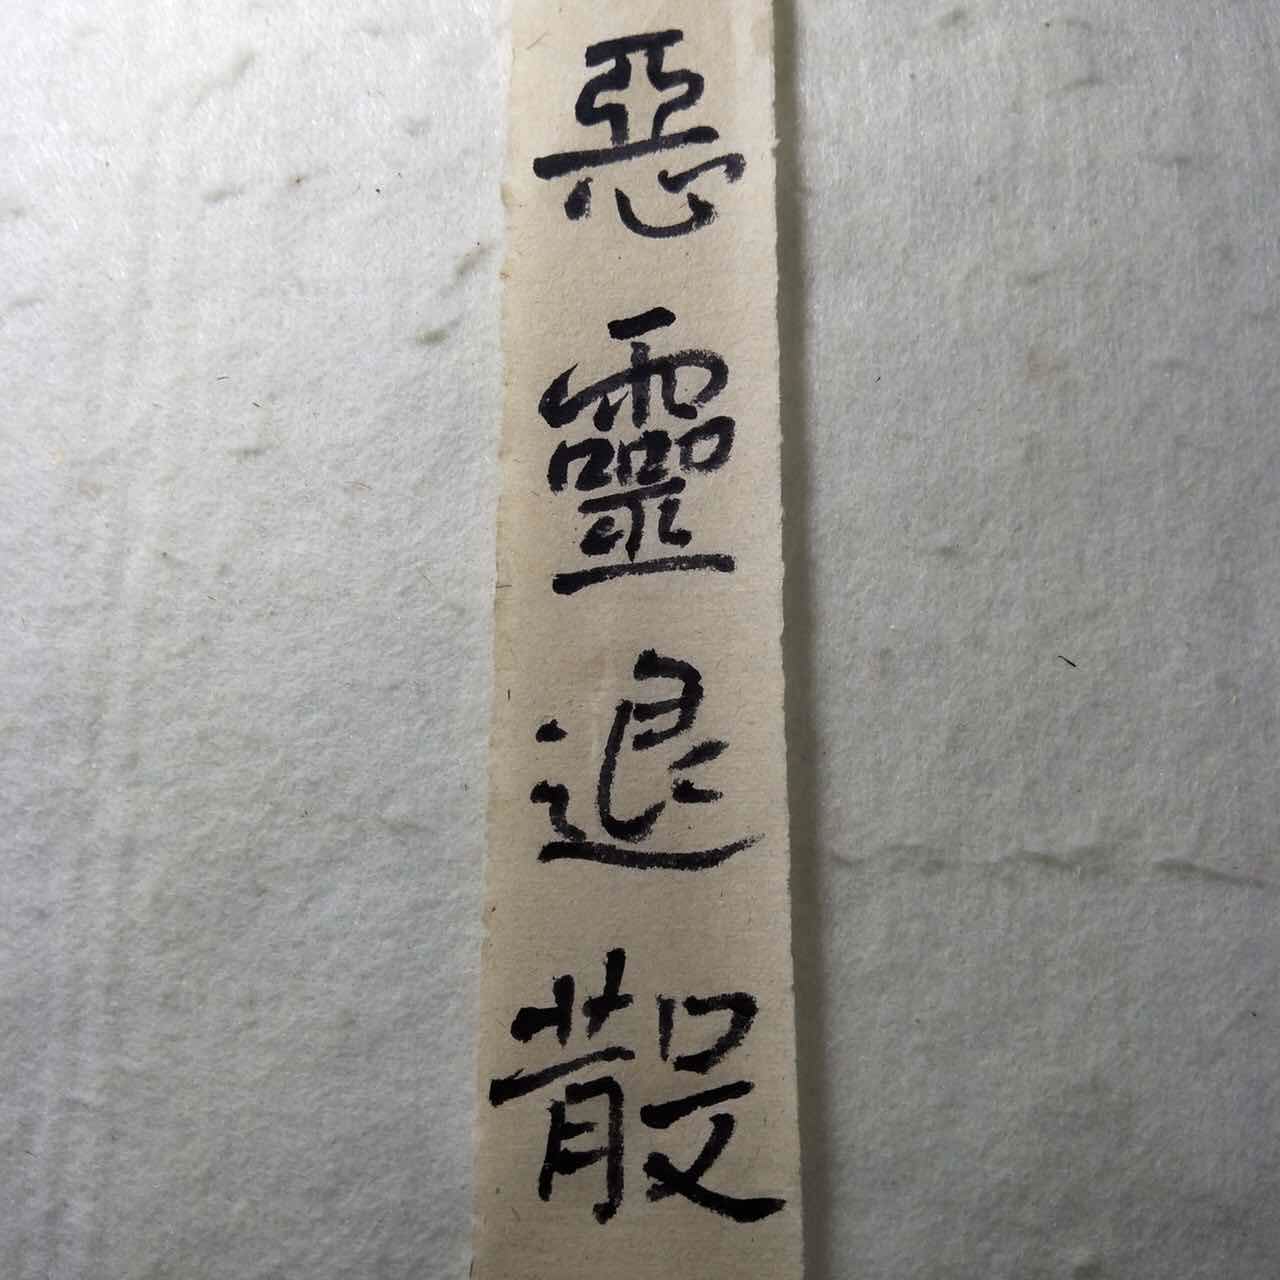 惡靈退散